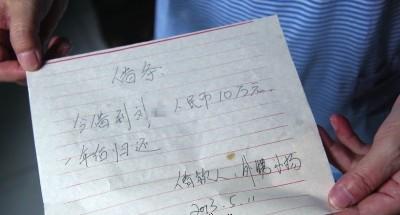 借条
今借到刘 人民币10万元
1年后归还
借款人:
2013.5.11